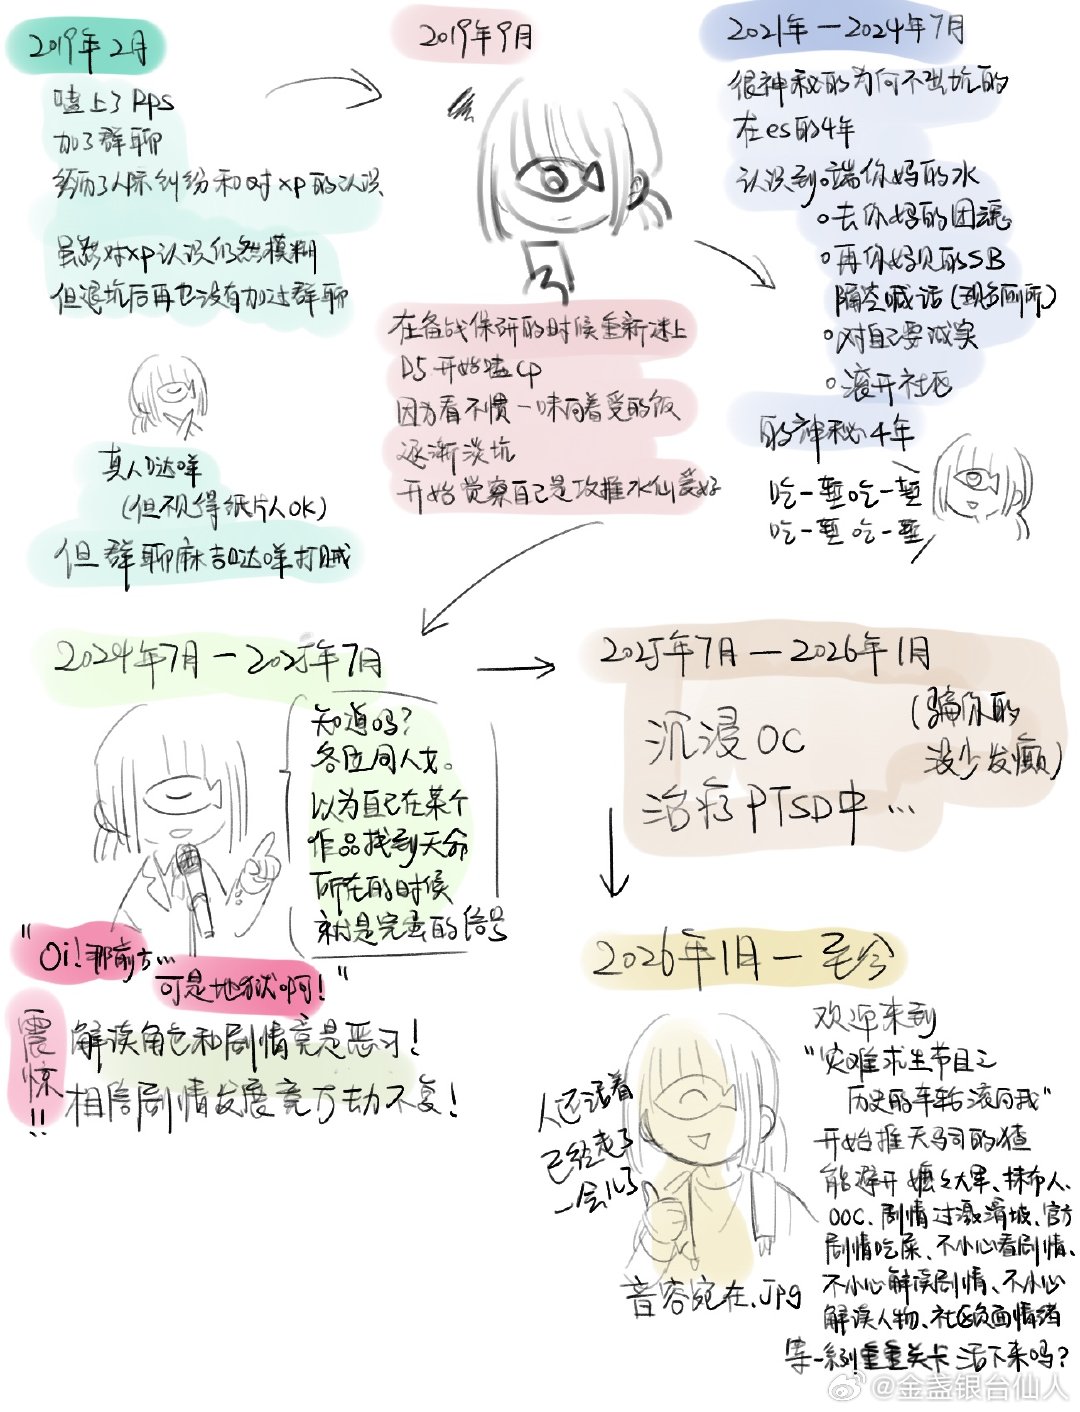 2019年2月
嗑上了pps
加了群聊
经历了人际纠纷和对xp的认识
虽然对xp认识仍然模糊
但退坑后再也没有加过群聊
真人哒咩
(但觉得纸片人OK)
但群聊麻吉哒咩打咩
2019年9月
在备战保研的时候重新迷上
D5开始嗑cp
因为看不惯一味向着受的饭
逐渐淡坑
开始觉察自己是攻推水仙爱好
2021年—2024年7月
很神秘的为何不出坑的
在es的4年
认识到。端你妈的水
。去你妈的团魂
。再你妈见的SB
隔空喊话(现名厕所)
。对自己要诚实
。滚开社区
的神秘4年
吃一堑吃一堑
吃一堑吃一堑
2024年7月—2025年7月
知道吗?
各位同人女。
以为自己在某个
作品找到天命
所在的时候
就是完蛋的信号
"Oi!那前方...
可是地狱啊!"
震惊!!
解读角色和剧情竟是恶习!
相信剧情发展竟万劫不复!
2025年7月—2026年1月
(骗你的
没少发癫)
沉浸OC
治疗PTSD中...
2026年1月—至今
欢迎来到
"灾难求生节目之
历史的车轮滚向我"
开始推天马司的猹
能避开嬷嬷大军、抹布人、
OOC、剧情过激滑坡、官方
剧情吃屎、不小心看剧情、
不小心解读剧情、不小心
解读人物、社区负面情绪
等一系列重重关卡活下来吗?
人还活着
已经走了
一会儿了
音容宛在.jpg
@金盏银台仙人